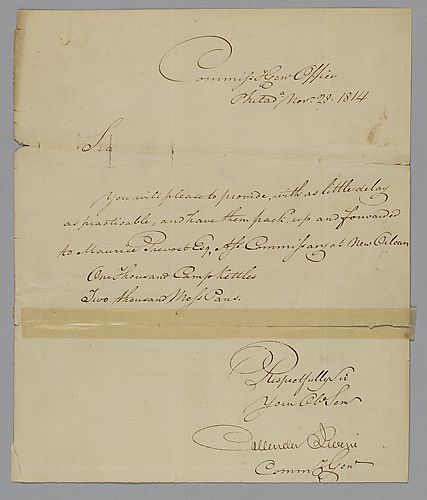 Commiss.y Gen.l Office
Philad.a Nov.r 28. 1814
Sir
You will please to provide, with as little delay
as practicable, and have them pack'd up and forwarded
to Maurice Prevost Esq, Ass Commissary at New Orleans
One thousand Camp Kettles
Two thousand Mess Pans.
Respectfully Sir
Your Ob.t Serv
Callender Irvine
Comm.y Gen.l